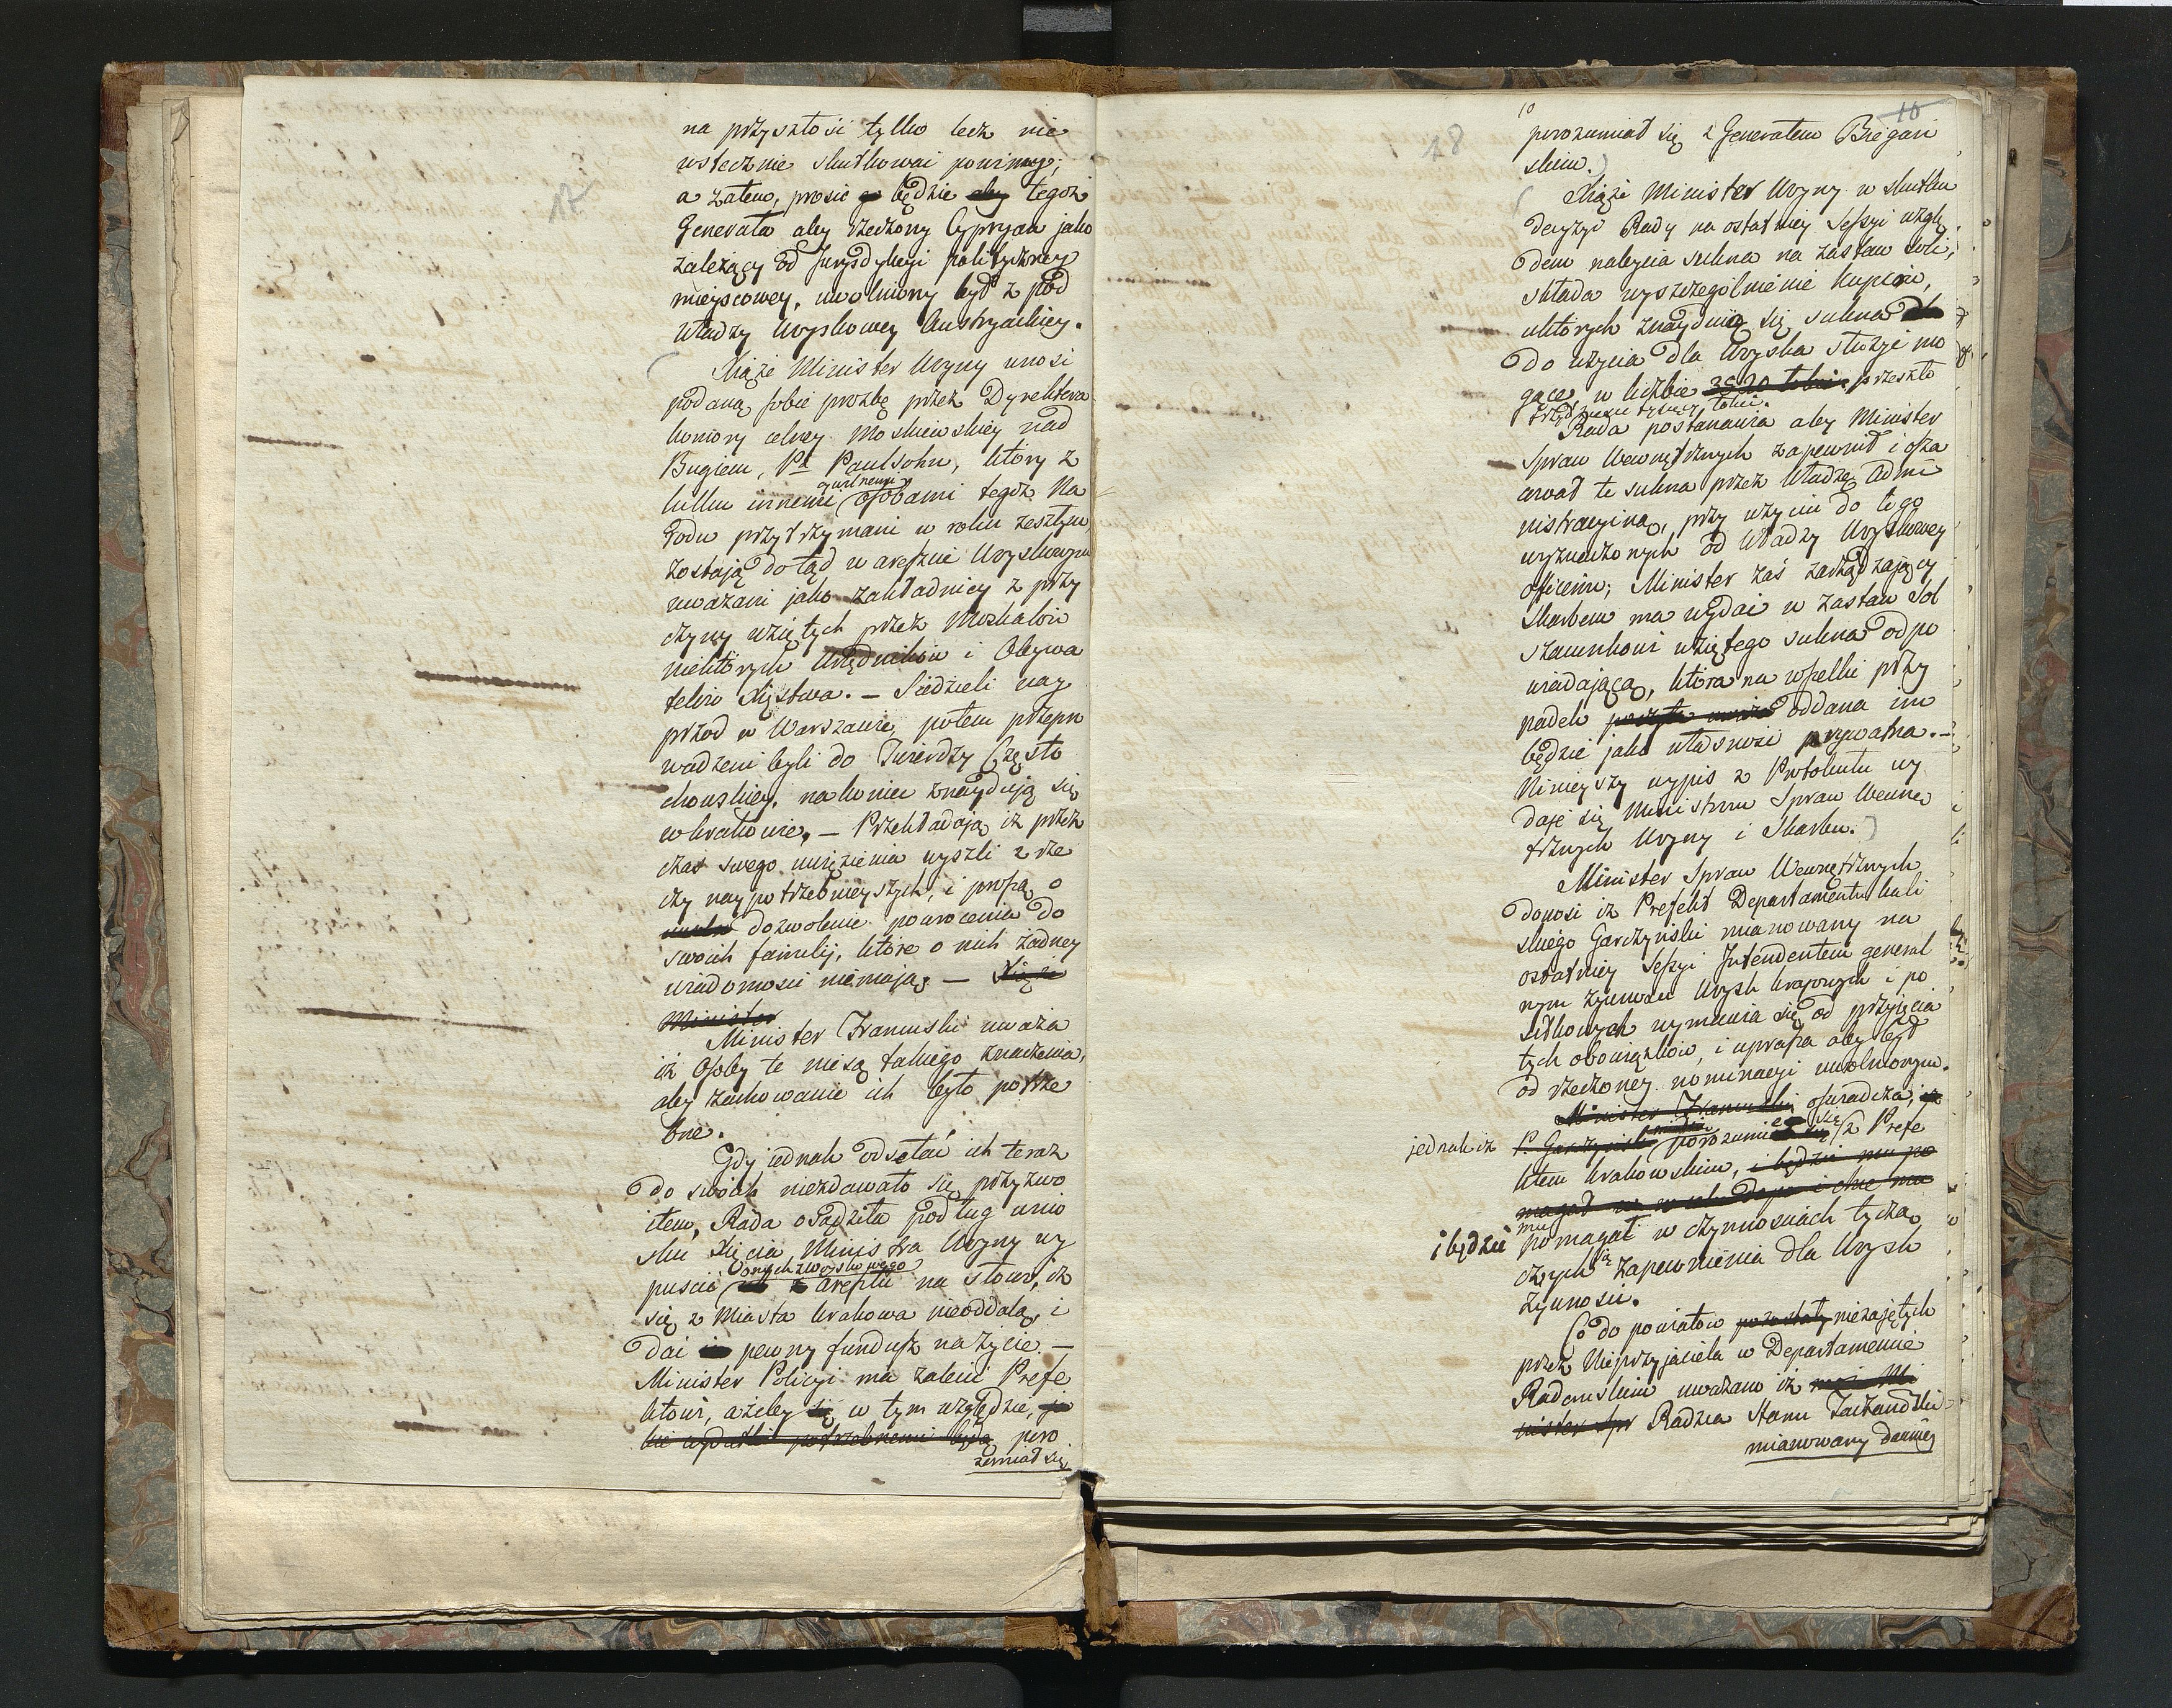 17
na przyszłość tylko lecz nie
wstecznie skutkować powinny;
a zatem, prosić będzie aby tegoż
Generała aby rzeczony Cypryan jako
zależący od Jurysdykcyi politycznej
mieyscowey, uwolniony był z pod
władzy Woyskowey Austryackiey.
Xiąże Minister Woyny wnosi
podaną sobie prozbę przez Dyrektora
komory celney Moskiewskiey nad
Bugiem, Pa Paulsohn, który z
cywilnemi
kilku innemi osobami tegoż Na
rodu przytrzymani w roku zeszłym
zostają dotąd w areszcie Woyskowym
uważani jako zakładnicy z przy
czyny wziętych przez Moskalów
niektórych Urzędników i Obywa
telów Xięstwa. – Siedzieli nay
przod w Warszawie, potem przepro
wadzeni byli do Twierdzy Często
chowskiey, nakoniec znayduią się
w Krakowie, – Przekładają iż przez
czas swego więzienia wyszli z rze
czy naypotrzebnieyszych, i proszą o
dozwolenie powrócenia do
swoich familij, które o nich żadney
wiadomości niemają. – Xiąże
Minister
Minister Francuski uważa
iż Osoby te nie są takiego znaczenia,
aby zachowanie ich było potrze
bne.
Gdy iednak odsełać ich teraz
do swoich niezdawało się przyzwo
item, Rada osądziła podług wnio
sku Xięcia Ministra Woyny wy
onych z woyskowego
puścić aresztu na słowo, iż
się z Miasta Krakowa nieoddalą, i
dać pewny fundusz na życie. –
Minister Policyi ma zalecić Prefe
ktowi, ażeby się w tym względzie, ja
kie wydatki potrzebnemi będą poro
zumiał się
18
10
10
porozumiał się z Generałem Biegań
skim.
Xiąże Minister Woyny w skutku
decyzyi Rady na ostatniey Sessyi wzglę
dem nabycia sukna na zastaw soli,
składa wyszczególnienie kupców,
u których znayduią się sukna
do użycia dla Woyska służyć mo
gące w liczbie przeszło
trzydzieści tysięcy łokci.
Rada postanawia aby Minister
Spraw Wewnętrznych zapewnił i osza
cował te sukna przez Władzę Admi
nistracyiną, przy użyciu do tego
wyznaczonych od Władzy Woyskowey
Officerów; Minister zaś zarządzający
Skarbem ma wydać w zastaw Sól
szacunkowi wziętego sukna odpo
wiadającą, która na wszelki przy
padek oddana im
będzie jako własność prywatna. –
Ninieyszy wypis z Protokułu wy
daje się Ministrom Spraw Wewnę
trznych Woyny i Skarbu.
Minister Spraw Wewnętrznych
donosi iż Prefekt Departamentu Kali
skiego Garczyński mianowany na
ostatniey Sessyi Intendentem general
nym żywności Woysk krajowych i po
siłkowych wymawia się od przyjęcia
tych obowiązków, i uprasza aby był
od rzeczoney nominacyi uwolnionym.
Minister Francuski oświadcza, iż
jednak iż P. Garczyński porozumie się z Prefe
ktem Krakowskim, i będzie mu po
i będzie mu pomagał w czynnościach tyczą
cych się zapewnienia dla Woysk
żywności.
Co do powiatów pozostały niezajętych
przez Nieprzyjaciela w Departamencie
Radomskim uważano iż
Radzca Stanu
mianowany dawniey